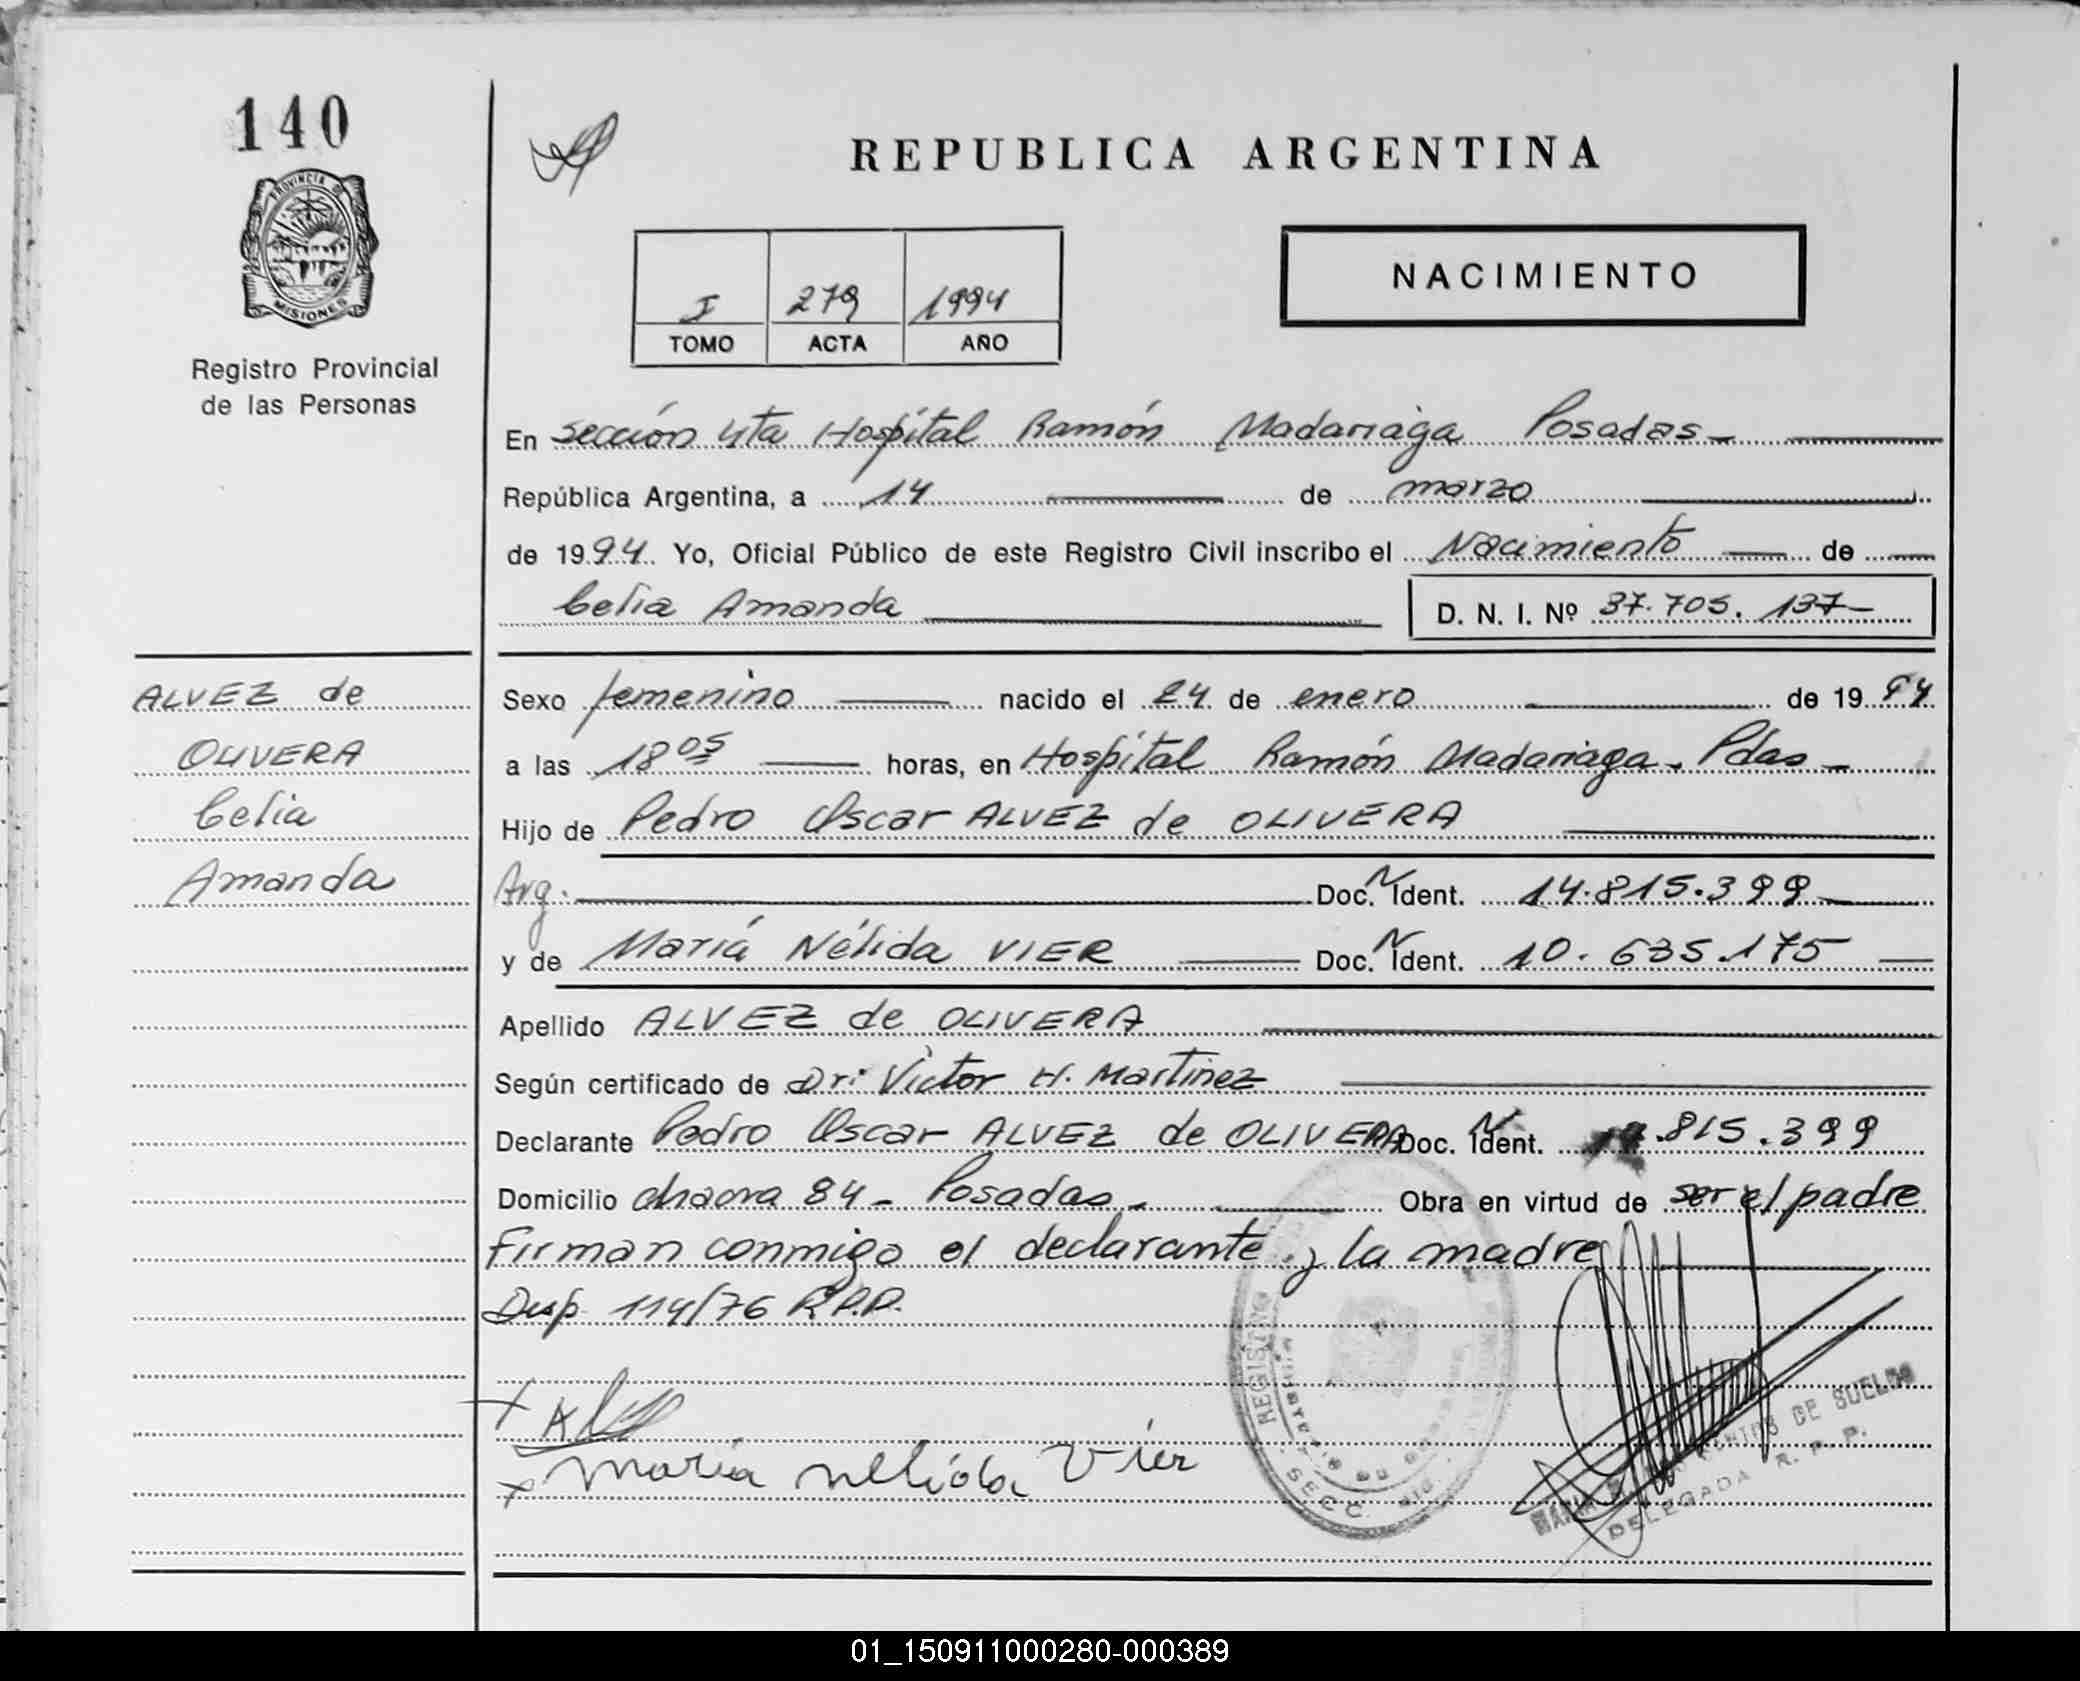 140
PROVINCIA DE
MISIONES
Registro Provincial
de las Personas
REPUBLICA ARGENTINA
I 279 1994
TOMO ACTA AÑO
NACIMIENTO
En sección 4ta Hospital Ramón Madariaga Posadas
República Argentina, a 14 de marzo
de 1994. Yo, Oficial Público de este Registro Civil inscribo el Nacimiento de
Celia Amanda D. N. I. Nº 37.705.137
ALVEZ de
OLIVERA
Celia
Amanda
Sexo femenino nacido el 24 de enero de 1994
a las 18 05 horas, en Hospital Ramón Madariaga. Pdas
Hijo de Pedro Oscar ALVEZ de OLIVERA
Arg. Doc. N Ident. 14.815.399
y de María Nélida VIER Doc. N Ident. 10.635.175
Apellido ALVEZ de OLIVERA
Según certificado de Dr: Victor H. Martinez
Declarante Pedro Oscar ALVEZ de OLIVERA Doc. N Ident. 14.815.399
Domicilio chacra 84 - Posadas Obra en virtud de ser el padre
Firman conmigo el declarante y la madre
Disp 114/76 R.P.P.
Maria nelida Vier
REGISTRO
SECC.
DE SUELDO
DELEGADA R. P. P.
01_150911000280-000389